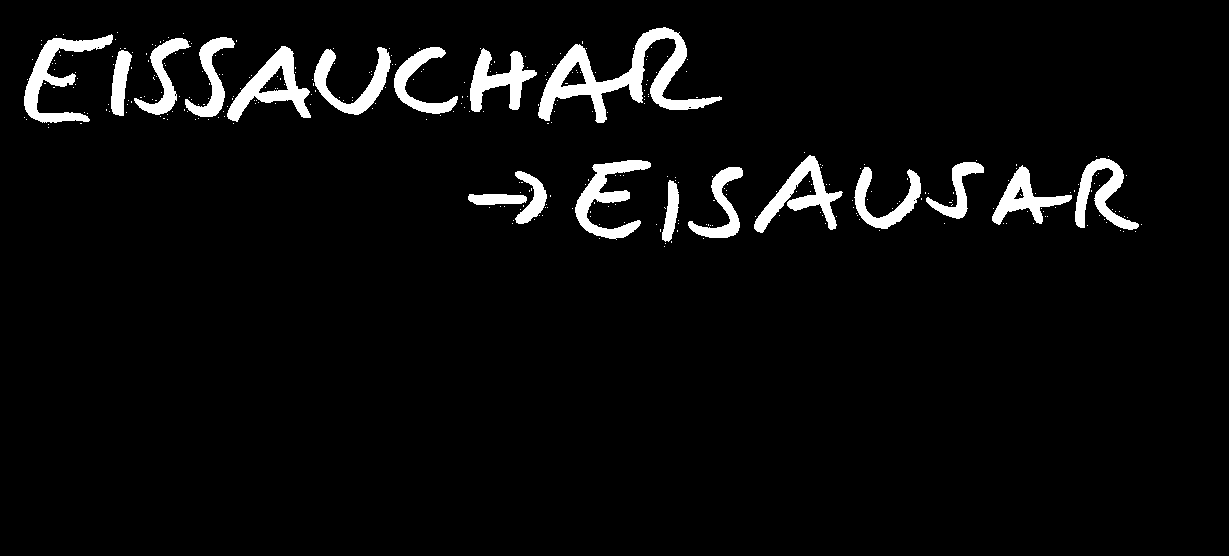 EISSAUCHAR
→ EISAUSAR